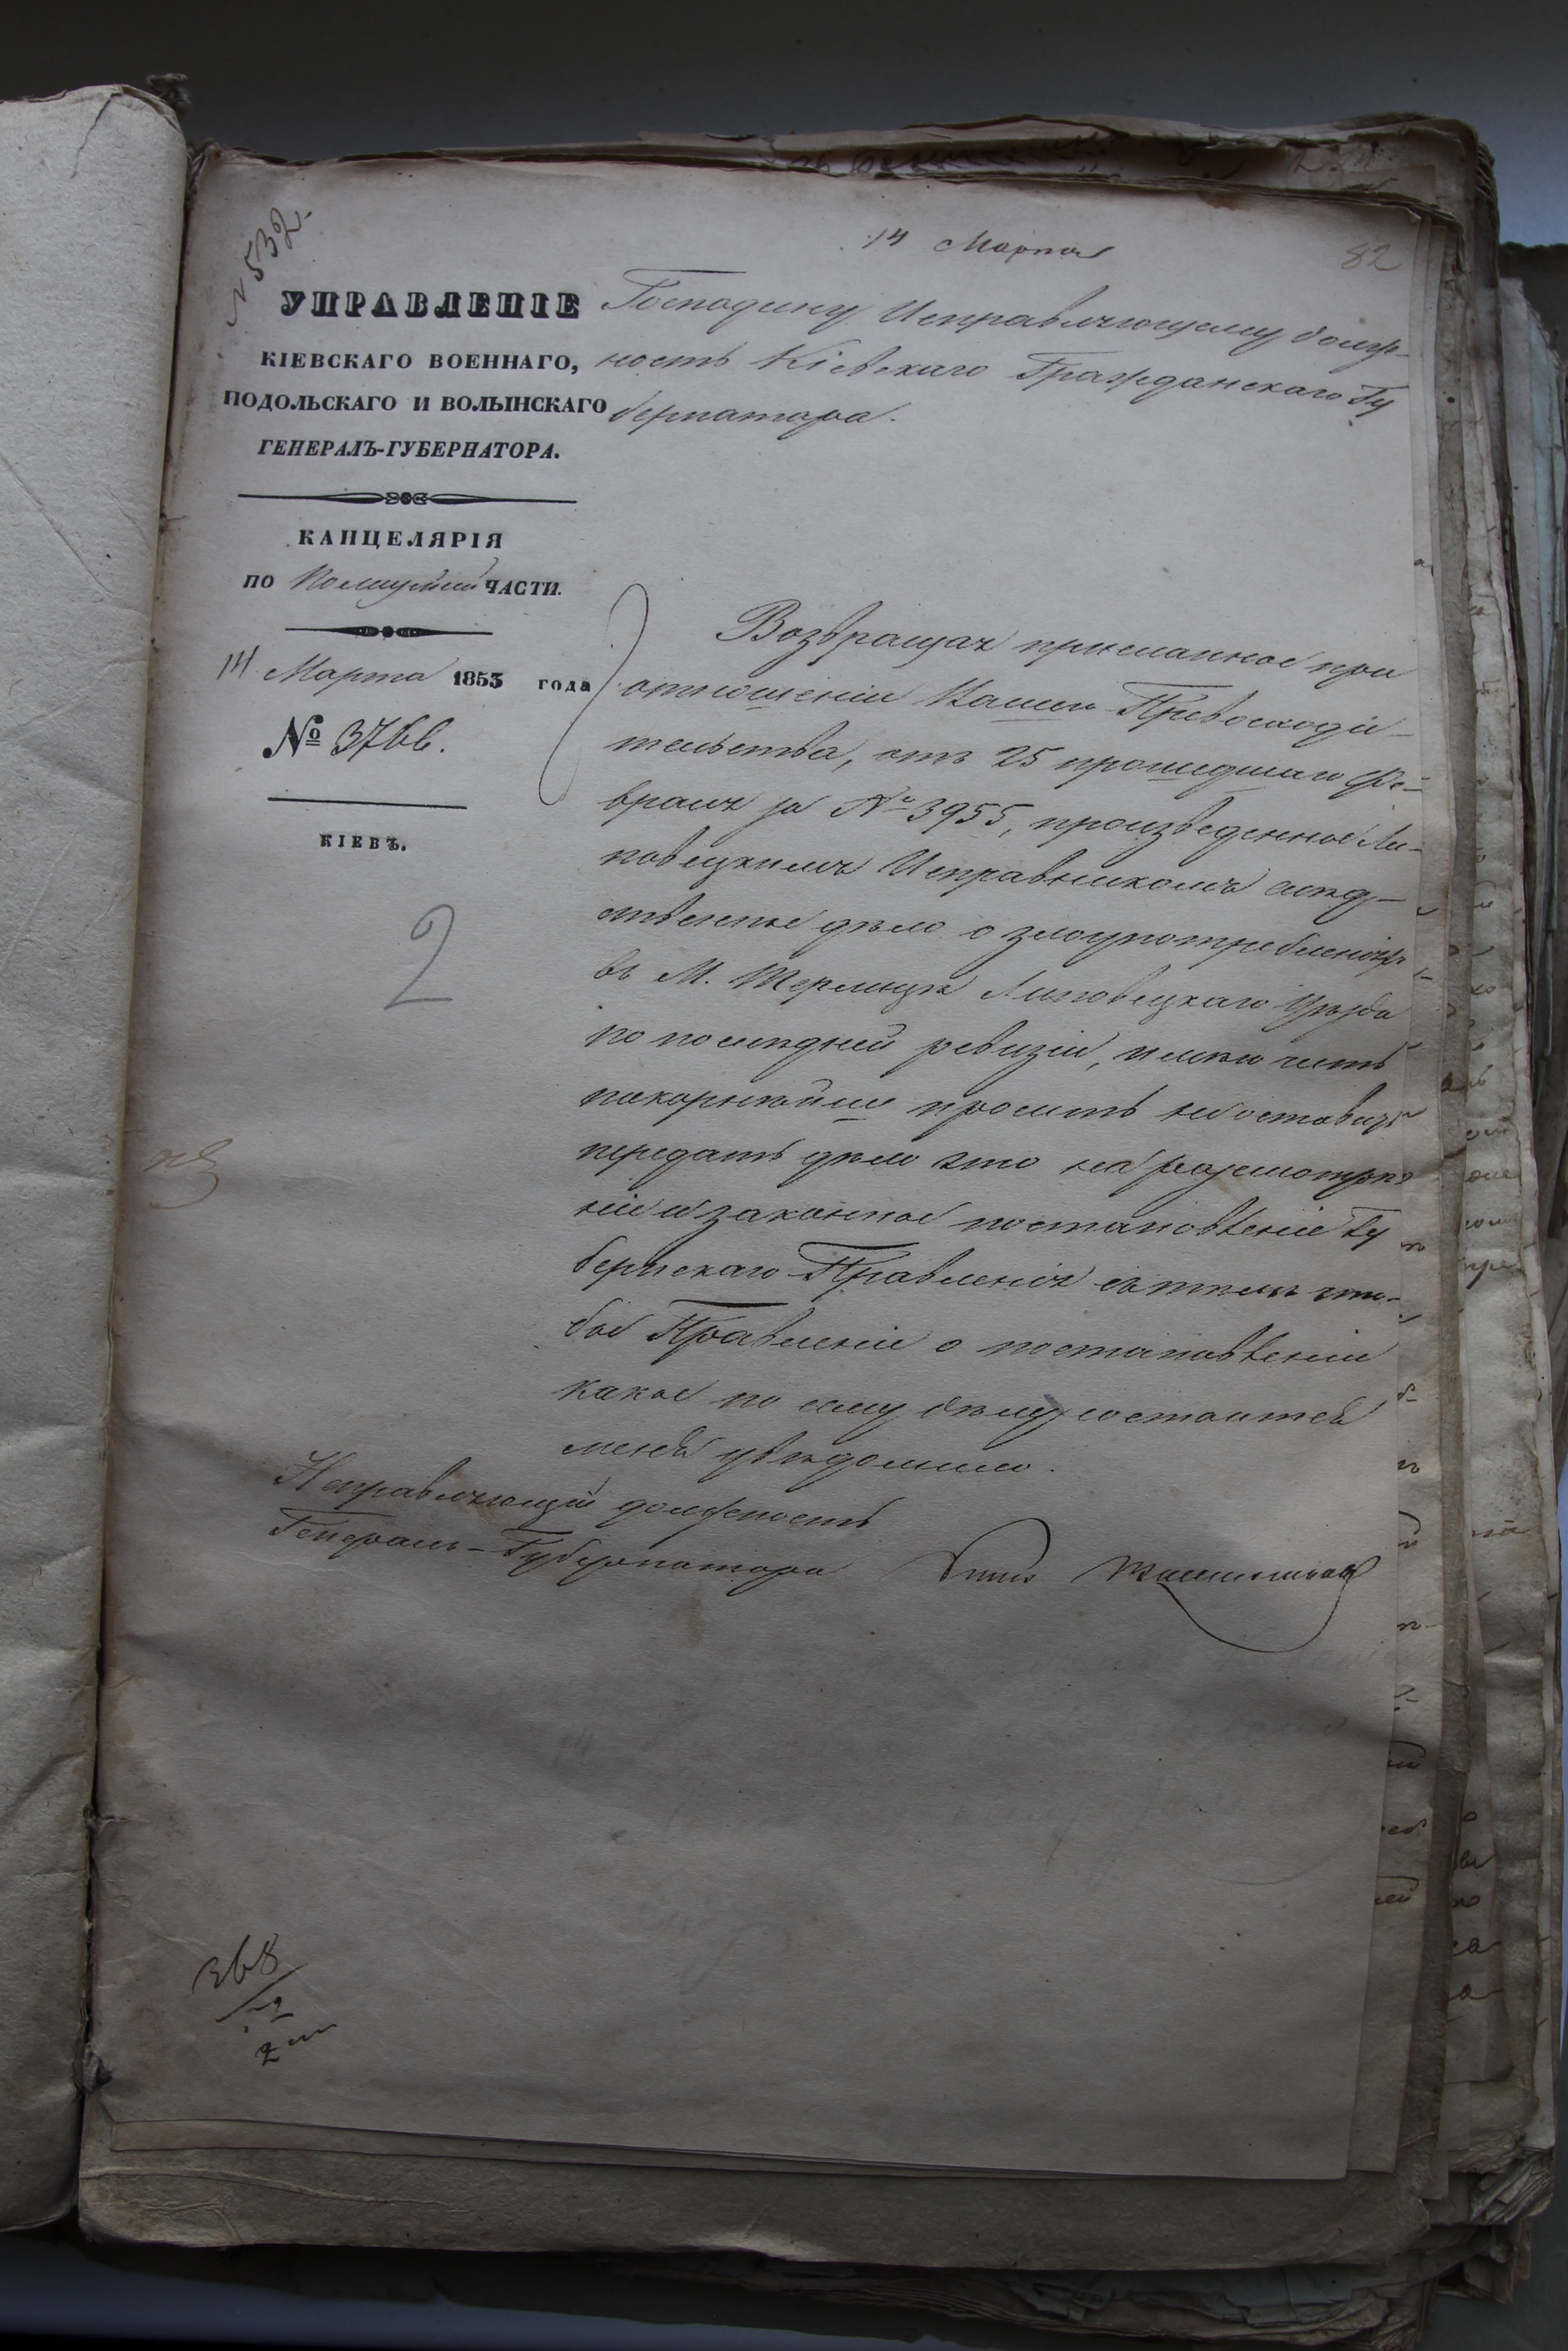 № 532.
14 Марта
82
УПРАВЛЕНІЕ
КІЕВСКАГО ВОЕННАГО,
ПОДОЛЬСКАГО И ВОЛЫНСКАГО
ГЕНЕРАЛЪ-ГУБЕРНАТОРА.
КАНЦЕЛЯРІЯ
ПО Полицейской ЧАСТИ.
14 Марта 1853 года
№ 3766.
КІЕВЪ.
2
Господину Исправляющему долж-
ность Кіевскаго Гражданскаго Гу
бернатора.
Возвращая присланное при
отношеніи Вашего Превосходи-
тельства, отъ 25 прошедшаго Фе-
враля за № 3955, произведенное Ли-
повецкимъ Исправникомъ слѣд-
ственное дѣло о злоупотребленіяхъ
въ М. Терлицѣ Липовецкаго Уѣзда
по послѣдней ревизіи, имѣю честь
покорнѣйше просить не оставить
передать дѣло это на разсмотрѣ-
ніе и законное постановленіе Гу
бернскаго Правленія съ тѣмъ что-
бы Правленіе о постановленіи
какое по сему дѣлу состоится
меня увѣдомило.
Исправляющій должность
Генералъ-Губернатора
368